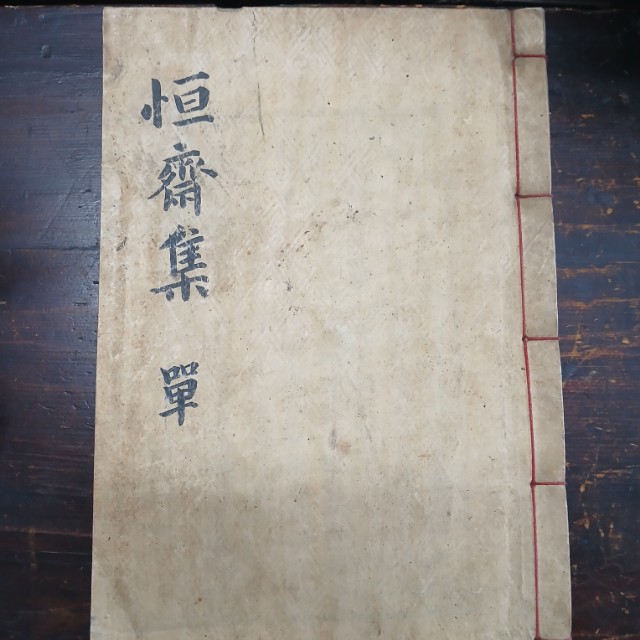 恒齋集 單